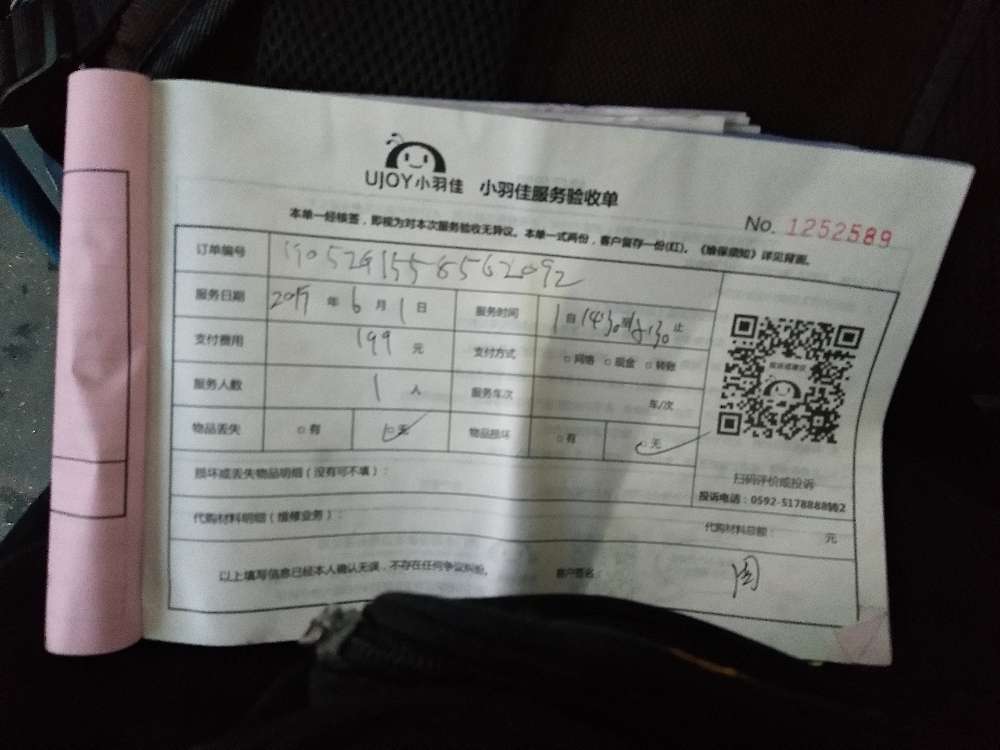 UJOY小羽佳 小羽佳服务验收单
No. 1252589
本单一经核签，即视为对本次服务验收无异议。本单一式两份，客户留存一份(红)。《维保须知》详见背面。
订单编号
服务日期 年 6 月 1 日 服务时间 1 自 14:30 到 止
支付费用 199 元 支付方式 □网络 □现金 □转账
服务人数 1 人 服务车次 车/次
物品丢失 □有 □无 物品损坏 □有 □无
扫码评价或投诉
投诉电话：0592-5178888转2
损坏或丢失物品明细（没有可不填）：
代购材料明细（维修业务）： 代购材料总额： 元
以上填写信息已经本人确认无误，不存在任何争议纠纷。 客户签名： 周